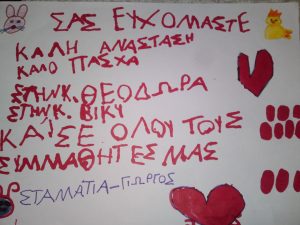 ΣΑΣ ΕΥΧΟΜΑΣΤΕ
ΚΑΛΗ ΑΝΑΣΤΑΣΗ
ΚΑΛΟ ΠΑΣΧΑ
ΣΤΗΝ Κ. ΘΕΟΔΩΡΑ
ΣΤΗΝ Κ. ΒΙΚΥ
ΚΑΙ ΣΕ ΟΛΟΥ ΤΟΥΣ
ΣΥΜΜΑΘΗΤΕΣ ΜΑΣ
ΣΤΑΜΑΤΙΑ-ΓΙΩΡΓΟΣ